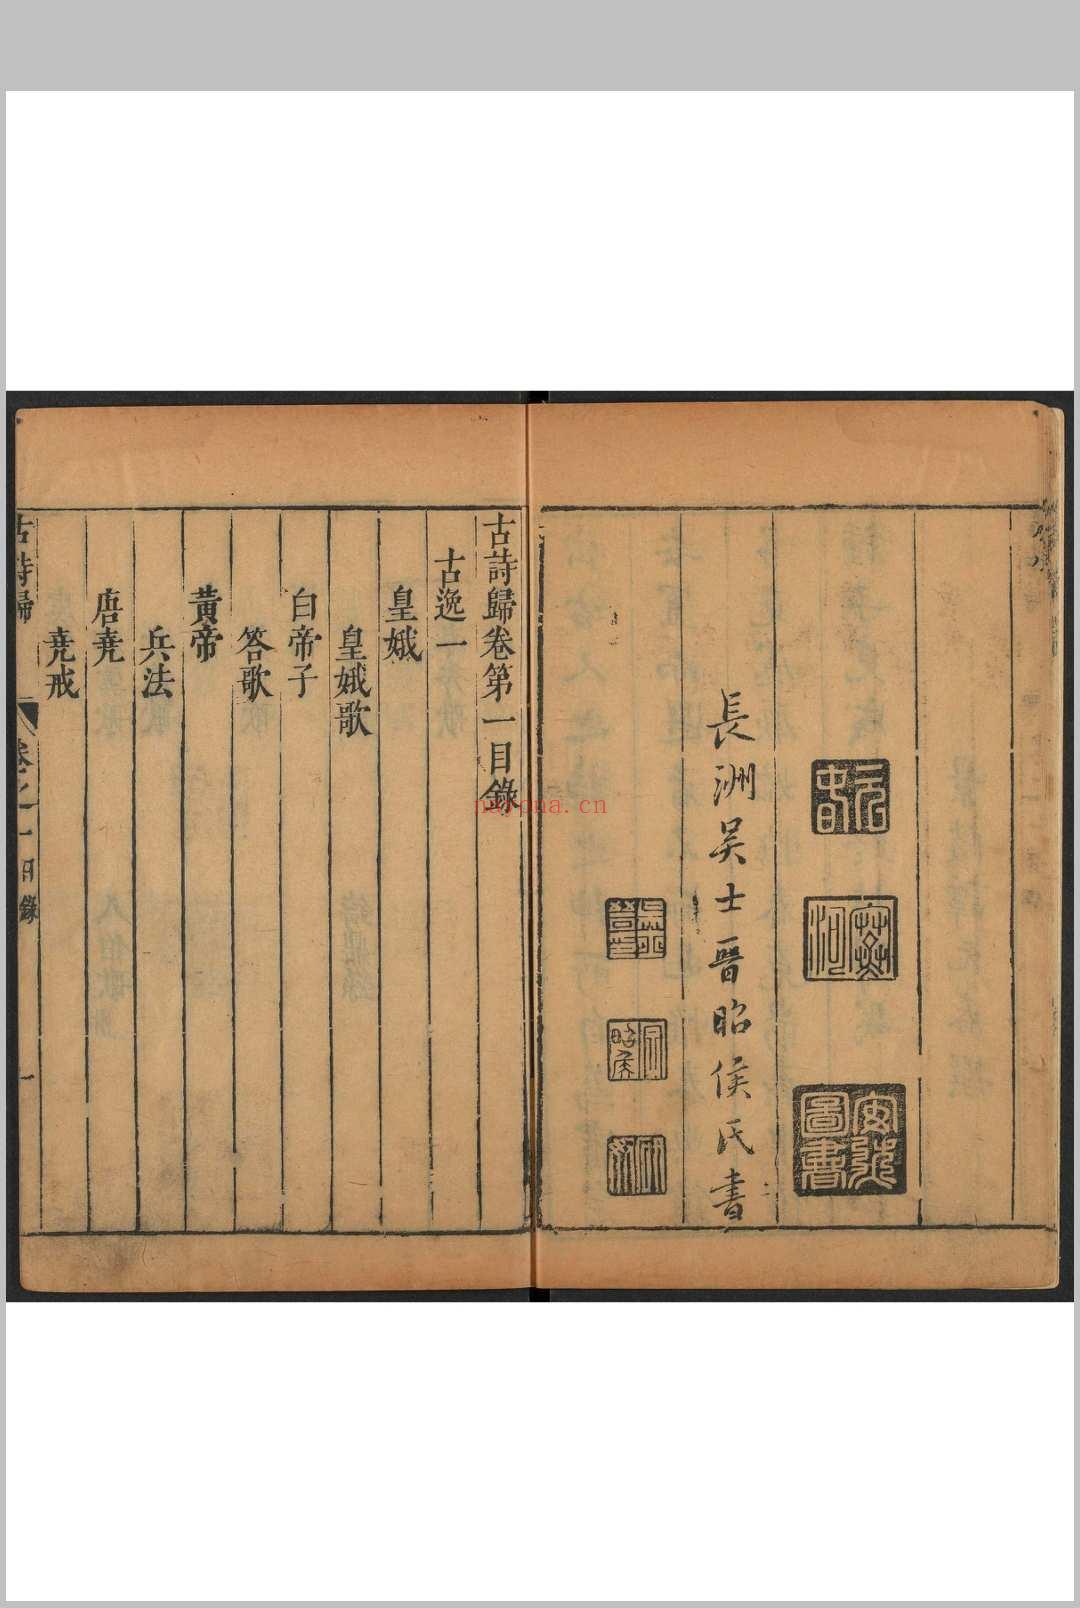 長洲吴士晋昭侯氏書
圖書
昭侯
古詩歸卷第一目錄
古逸一
皇娥
皇娥歌
白帝子
答歌
黃帝
兵法
唐堯
堯戒
古詩歸 卷之一目錄 一
nayona.cn